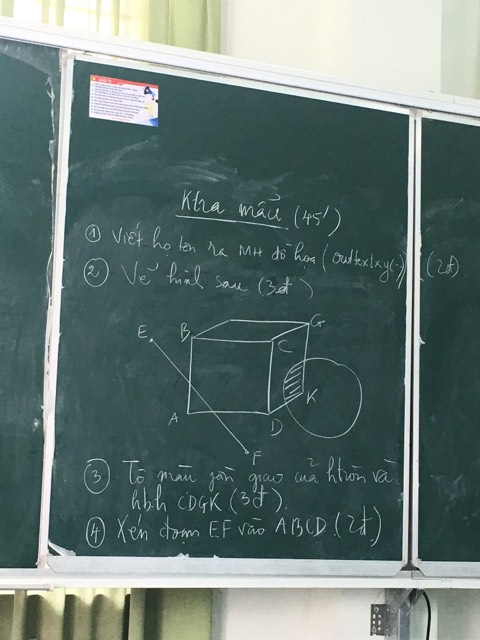 Ktra mẫu (45')
① Viết họ tên ra MH đồ họa (outtextxy(-)) (2đ)
② Vẽ hình sau (3đ)
E
B
G
C
A
D
K
F
③ Tô màu phần giao của htròn và
hbh CDGK (3đ)
④ Xén đoạn EF vào ABCD. (2đ)